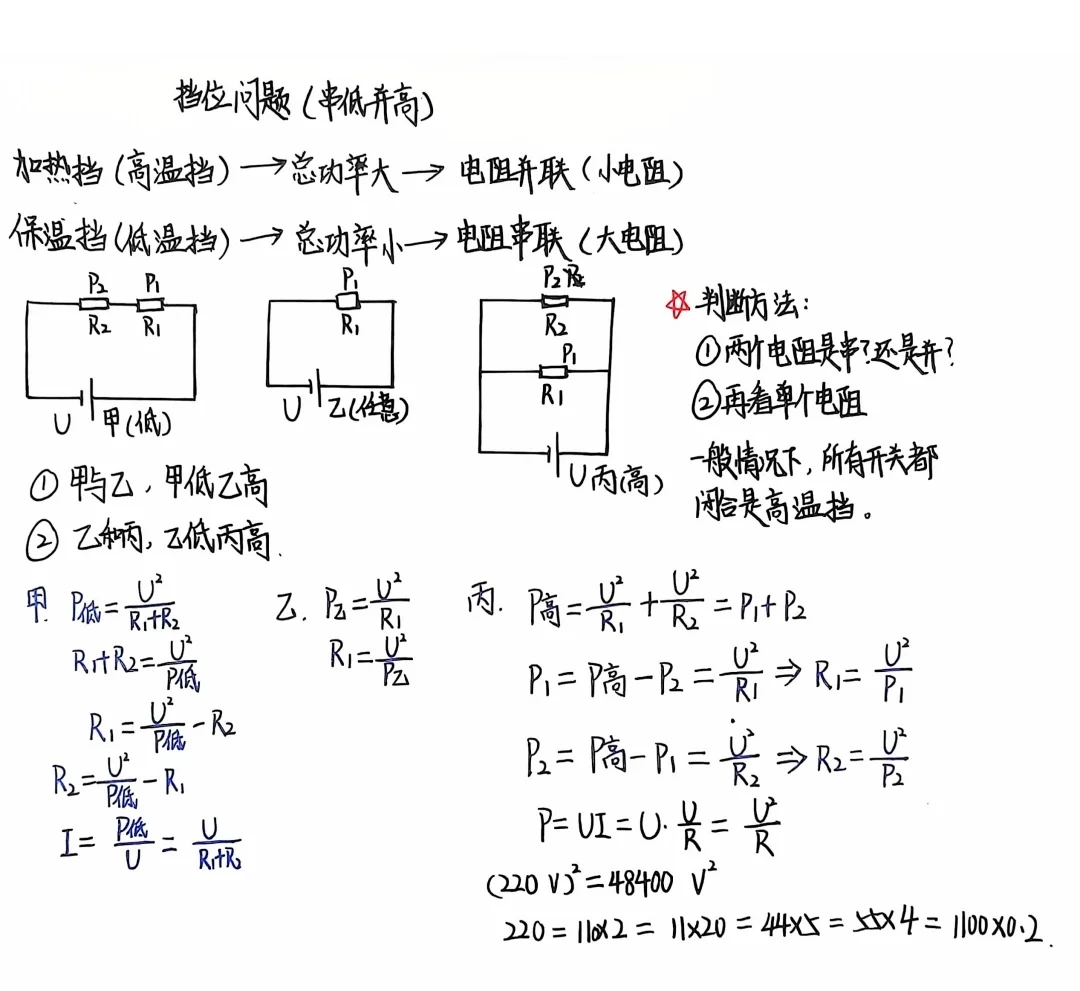 挡位问题(串低并高)
加热挡(高温挡)→总功率大→电阻并联(小电阻)
保温挡(低温挡)→总功率小→电阻串联(大电阻)
P₂ P₁
R₂ R₁
U 甲(低)
P₁
R₁
U 乙(任意)
P₂
R₂
P₁
R₁
U 丙(高)
☆判断方法:
①两个电阻是串?还是并?
②再看单个电阻
一般情况下,所有开关都
闭合是高温挡。
①甲与乙,甲低乙高
②乙和丙,乙低丙高.
甲. P低=U²/(R₁+R₂)
R₁+R₂=U²/P低
R₁=U²/P低-R₂
R₂=U²/P低-R₁
I=P低/U=U/(R₁+R₂)
乙. P乙=U²/R₁
R₁=U²/P乙
丙. P高=U²/R₁+U²/R₂=P₁+P₂
P₁=P高-P₂=U²/R₁⇒R₁=U²/P₁
P₂=P高-P₁=U²/R₂⇒R₂=U²/P₂
P=UI=U·U/R=U²/R
(220 V)²=48400 V²
220=110×2=11×20=44×5=55×4=1100×0.2.